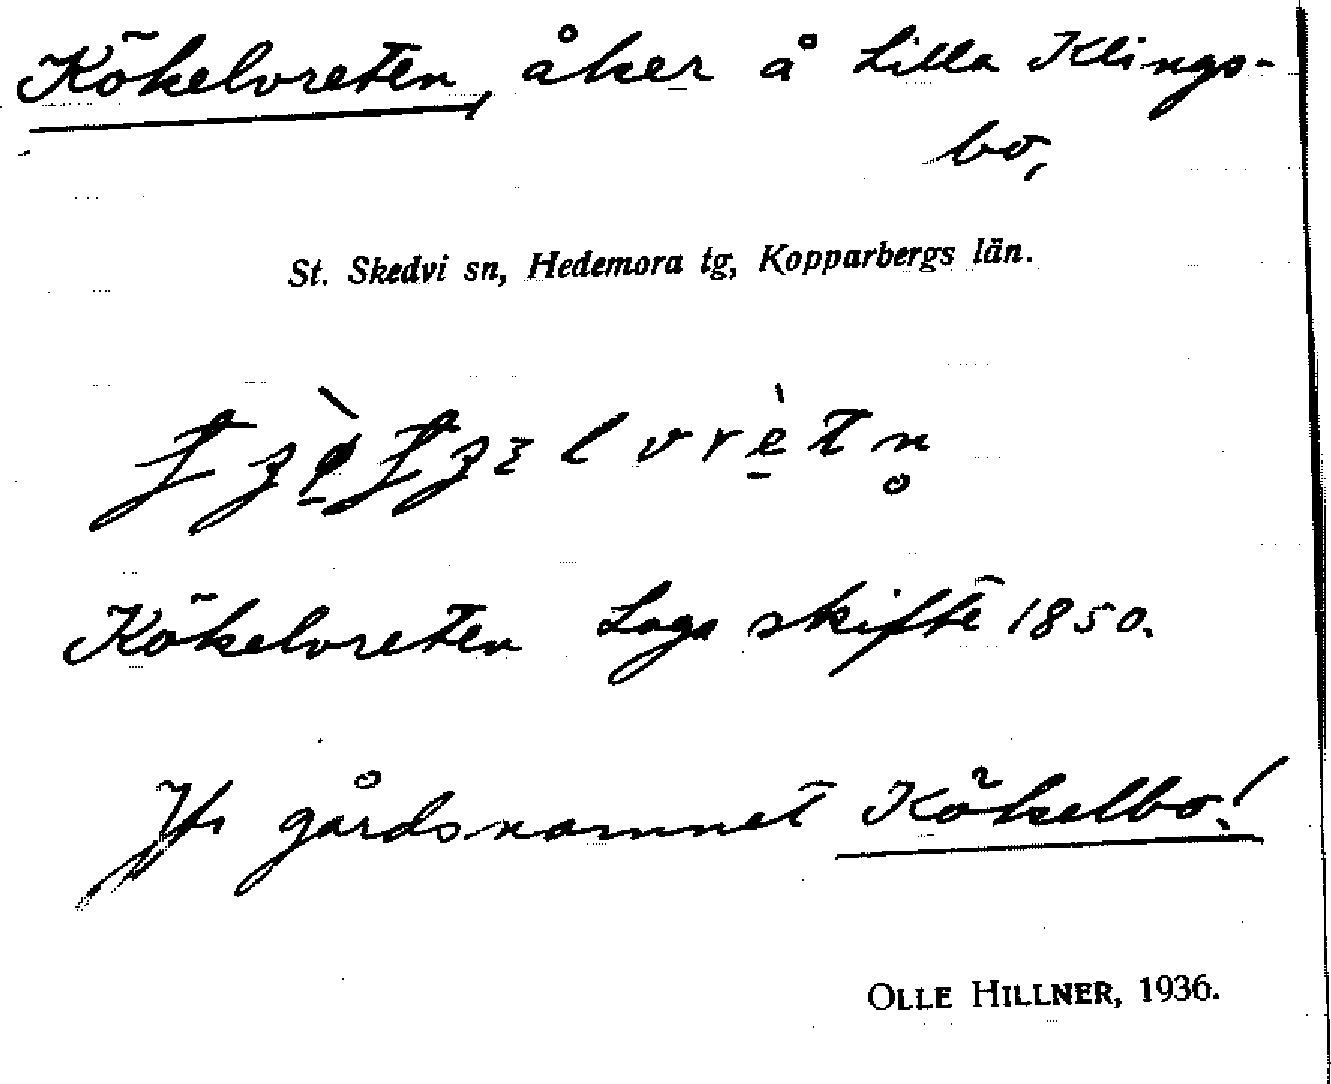 Kökelvreten, åker å Lilla Klings-
bo,
St. Skedvi sn, Hedemora tg, Kopparbergs län.
Kökelvreten Laga skifte 1850.
Jfr gårdsnamnet Kökelbo!
OLLE HILLNER, 1936.